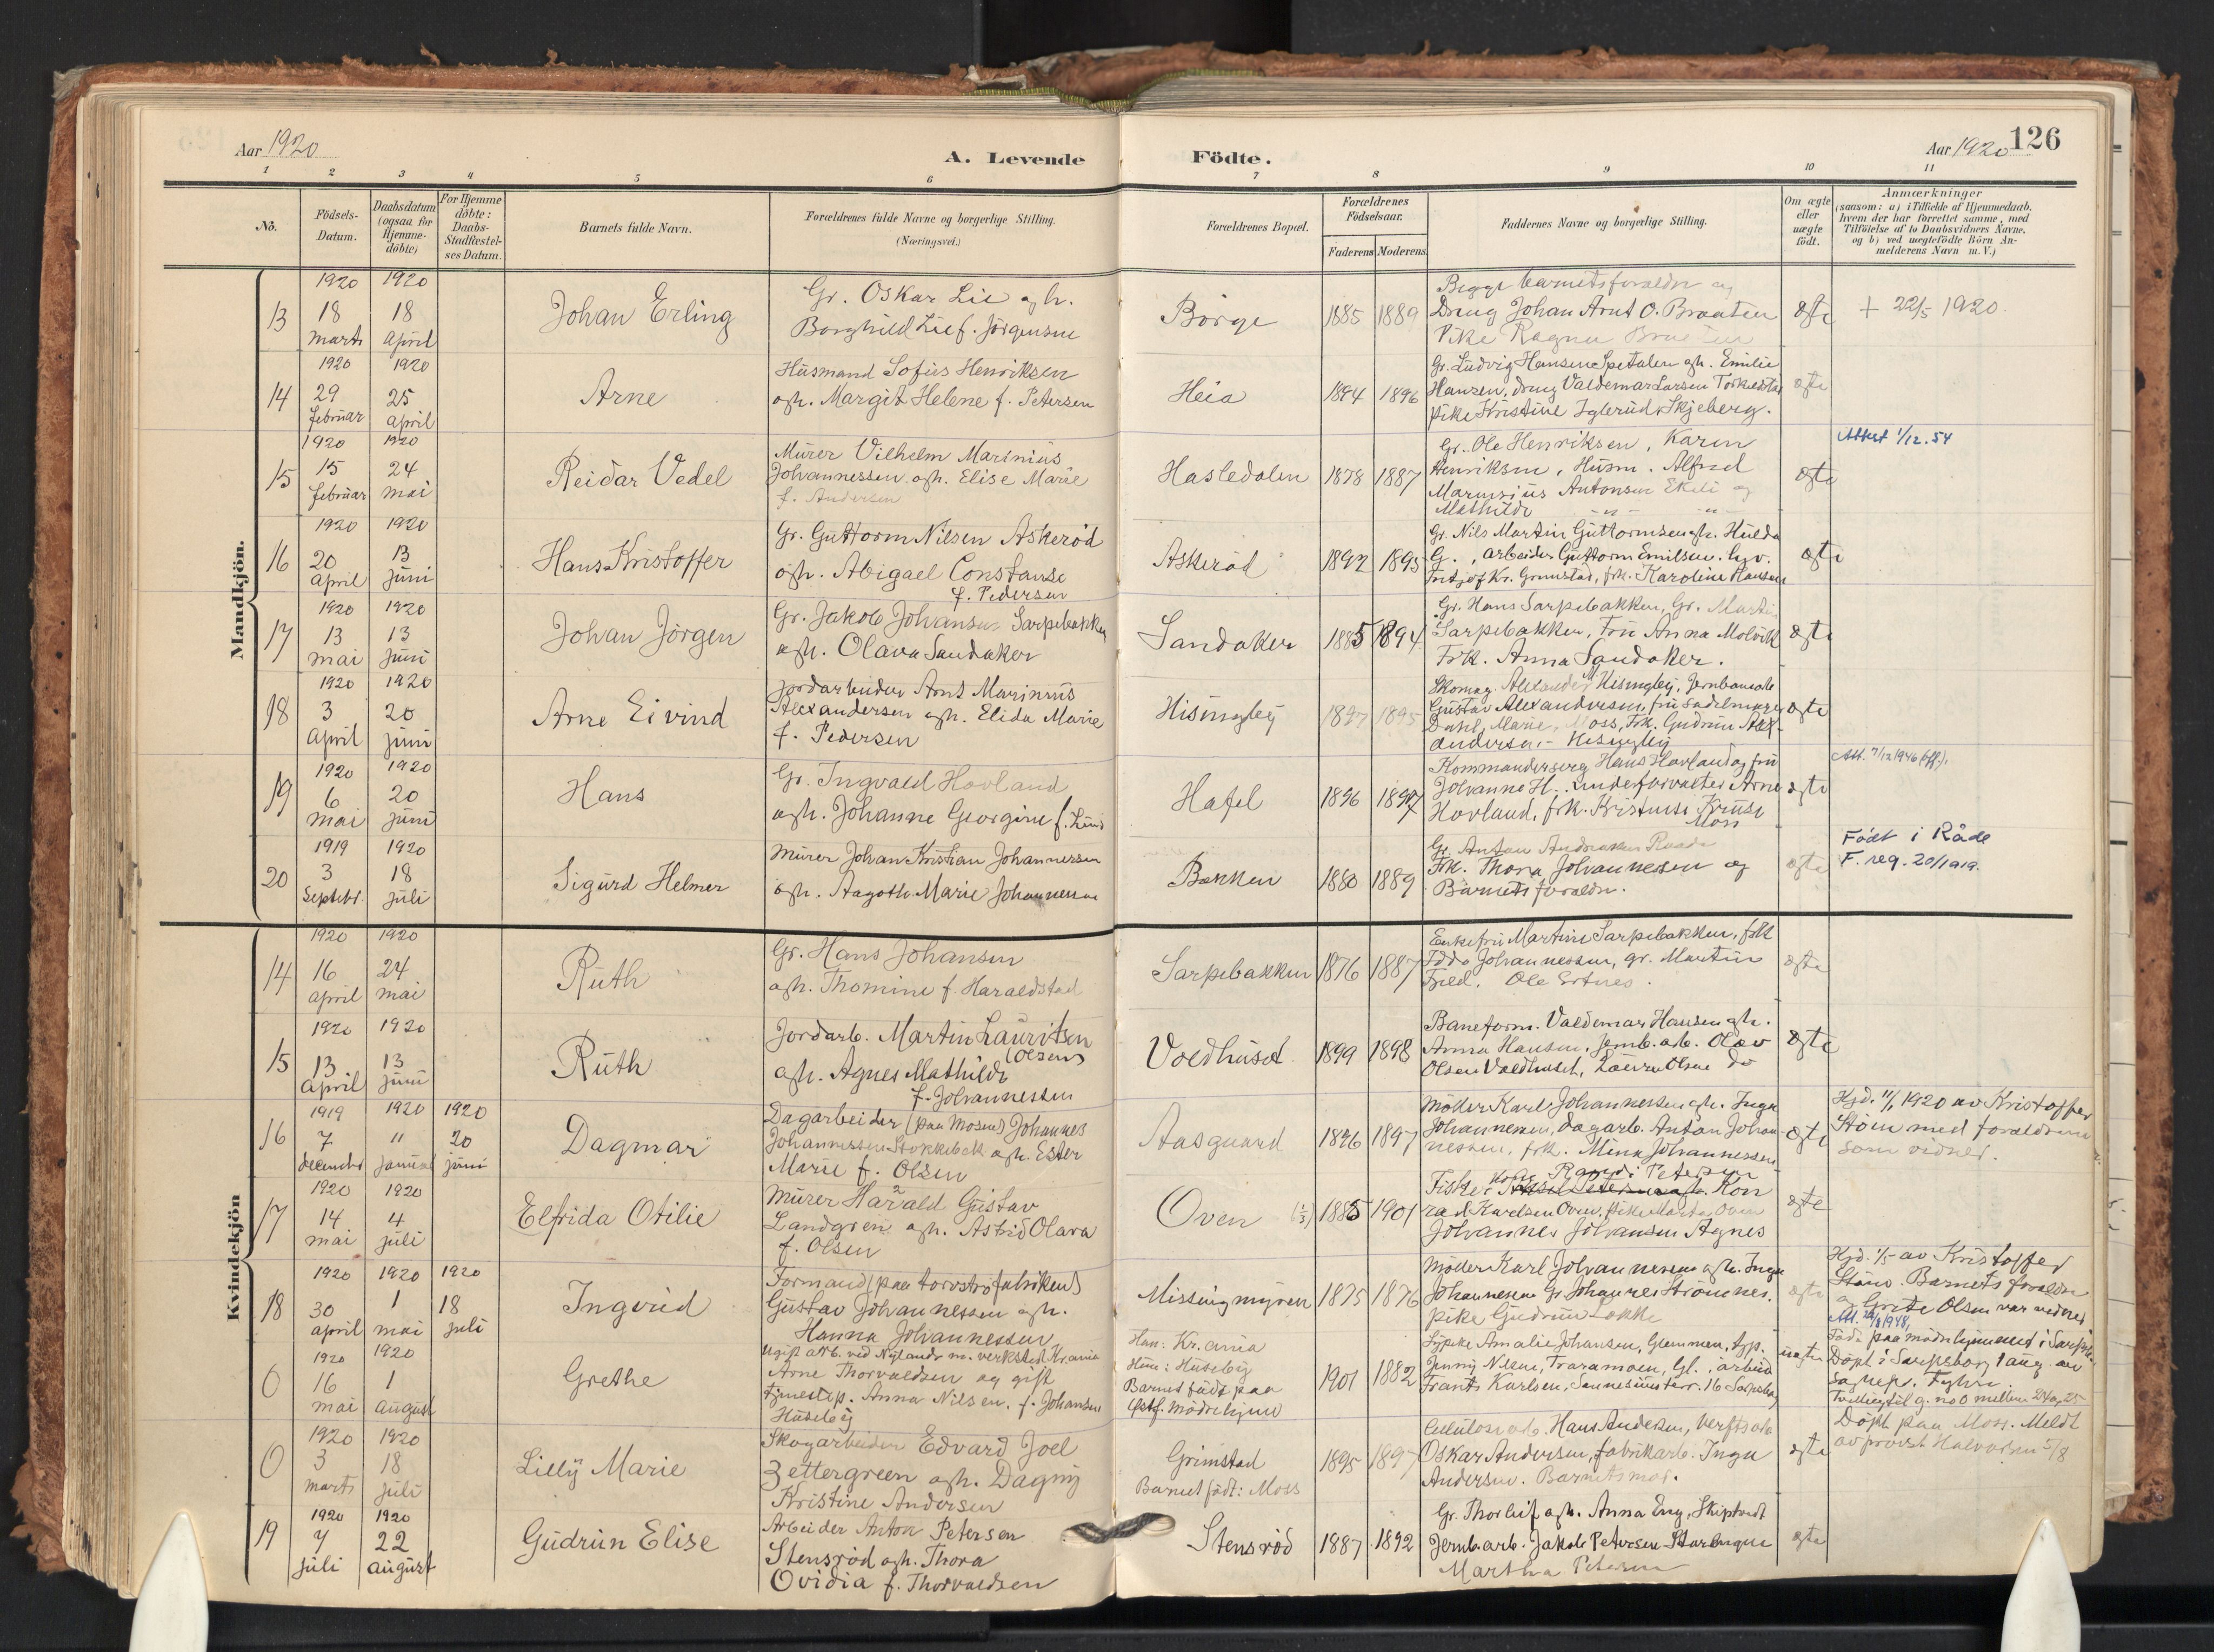 Aar 1920
A. Levende
Födte.
Aar 1920
126
1 2 3 4 5 6 7 8 9 10 11
No.
Födsels-
Datum.
Daabsdatum
(ogsaa for
Hjemme-
döbte)
For Hjemme
döbte:
Daabs-
Stadfæstel-
ses Datum.
Barnets fulde Navn.
Forældrenes fulde Navne og borgerlige Stilling.
(Næringsvei.)
Forældrenes Bopæl.
Forældrenes
Födselsaar.
Faderens Moderens
Faddernes Navne og borgerlige Stilling.
Om ægte
eller
uægte
födt.
Anmærkninger
(saasom: a) i Tilfælde af Hjemmedaab.
hvem der har forrettet samme, med
Tilföielse af to Daabsvidners Navne.
og b) ved uægtefödte Börn An-
melderens Navn m. V.)
Mandkjön.
13
1920 18 marts
1920 18 april
Johan Erling
Gr. Oskar Lie og h.
Borghild Lie f. Jörgensen
Börge
1885 1889
Begge barnets forældre og
Dreng Johan Arnt O. Braaten
Pike Ragna
ægte
+ 22/5 1920.
14
1920 29 februar
1920 25 april
Arne
Husmand Sofus Henriksen
og h. Margit Helene f. Petersen
Heia
1894 1896
Gr. Ludvig Hansen Spetalen og h. Emilie
Hansen, dreng Valdemar Larsen
pike Kristine Iglerud, Skjeberg.
ægte
15
1920 15 februar
1920 24 mai
Reidar Vedel
Murer Vilhelm Marinius
Johannessen og h. Elise Marie
f. Andersen
Hasledalen
1878 1887
Gr. Ole Henriksen, Karen
Henriksen, Husm. Alfred
Marinsius Antonsen Ekeli og
Mathilde -"- -"-
ægte
Attest 1/12.54
16
1920 20 april
1920 13 juni
Hans Kristoffer
Gr. Guttorm Nilsen Askeröd
og h. Abigael Constanse
f. Pedersen
Askeröd
1892 1895
Gr. Nils Martin Guttormsen og h. Hulda
G., arbeider Guttorm Emilsen.
Fritjof Kr. Grimstad, frk. Karoline Hansen
ægte
17
1920 13 mai
1920 13 juni
Johan Jörgen
Gr. Jakob Johansen Sarpebakken
og h. Olava Sandaker
Sandaker
1885 1894
Gr. Hans Sarpebakken, Gr. Martin
Sarpebakken, Fru Anna Molvik
Frk. Anna Sandaker.
ægte
18
1920 3 april
1920 20 juni
Arne Eivind
Jordarbeider Arnt Marinius
Alexandersen og h. Elida Marie
f. Pedersen
Hisingløy
1897 1895
Skomag. Alexander Hisingløy, Jernbanearb
Gustav Alexandersen, fru Sadelmaker
Dahl, Marie, Moss, Frk. Gudrun Alex-
andersen - Hisingløy
ægte
19
1920 6 mai
1920 20 juni
Hans
Gr. Ingvald Hovland
og h. Johanne Georgine f. Lund
Hafel
1896 1897
Kommandersерg Hans Hovland og fru
Johanne H., underforvalter Arne
Hovland, frk. Kristense Kruse
Moss
ægte
Att. 7/12 1946 (off).
20
1919 3 Septebr.
1920 18 juli
Sigurd Helmer
Murer Johan Kristian Johannessen
og h. Aagoth Marie Johannessen
Bakken
1880 1889
Gr. Anton Andreassen Raade
Frk. Thora Johannessen og
Barnets forældre.
ægte
Födt i Råde
F. reg. 20/1919.
Kvindekjön
14
1920 16 april
1920 24 mai
Ruth
Gr. Hans Johansen
og h. Thomine f. Haraldstad
Sarpebakken
1876 1887
Enkefru Martine Sarpebakken, frk
Edda Johannessen, gr. Martin
Fjeld. Ole Ertnes.
ægte
15
1920 13 april
1920 13 juni
Ruth
Jordarb. Martin Lauritsen
(Olsen)
og h. Agnes Mathilde
f. Johannessen
Voldhuset
1899 1898
Baneform. Valdemar Hansen og h.
Anna Hansen, Jernb.arb. Olav
Olsen Voldhuset, Laura Olsen do
ægte
16
1919 7 decembr
1920 11 januar
1920 20 juni
Dagmar
Dagarbeider (paa Mosen) Johannes
Johannessen Stokkebek og h. Ester
Marie f. Olsen
Aasgaard
1896 1897
Möller Karl Johannessen og h. Inga
Johannessen, dagarb. Anton Johan-
nessen, frk. Mina Johannessen
ægte
Hjd. 11/1 1920 av Kristoffer
Stöm med forældrene
som vidner.
17
1920 14 mai
1920 4 juli
Elfrida Otilie
Murer Harald Gustav
Landgren og h. Astrid Olava
f. Olsen
Oven
1885 1901
Kone Randi Petersen
Fisker Kon
rad Karlsen Oven, pike Marta Oven
Johannes Johansen Agnes
ægte
18
1920 30 april
1920 1 mai
1920 18 juli
Ingrid
Formand (paa torvströfabriken)
Gustav Johannessen og h.
Hanna Johannessen
Missingmyren
1875 1876
Möller Karl Johannessen og h. Inga
Johannessen Gr Johannes Strömnes.
pike Gudrun Løkke
ægte
Hjd. 1/5 av Kristoffer
Stöm. Barnets forældre
og Grete Olsen var vidner
0
1920 16 mai
1920 1 august
Grethe
Ugift arb. ved Nylands m. verksted Kr.ania
Arne Thorvaldsen og gift
tjenestep. Anna Nilsen, f. Johansen
Huseby
Han: Kr.ania
Hun: Huseby
Barnet födt paa
Östf. Mödrehjem
1901 1882
Sypike Amalie Johansen, Glemmen, syp.
Jenny Nilsen, Traramoen, Gl., arbeid
Frants Karlsen, Sannesunds terr. 16 Sarpsborg
uægte
Att. 1948.
Född paa mödrehjemmet i Sarpsb.
Döpt i Sarpsborg 1 aug. av
sognepr. Tyhn.
Tvilling til g. no 0 mellem 24 og 25
0
1920 3 marts
1920 18 juli
Lilly Marie
Skogarbeider Edvard Joel
Zettergreen og h. Dagny
Kristine Andersen
Grimstad
Barnet födt: Moss
1895 1897
Celulosearb. Hans Andersen, Verftsarb
Oskar Andersen, fabrikarb. Inga
Andersen. Barnets mor.
ægte
Döpt paa Moss. Meldt
av provst Halvorsen 5/8
19
1920 7 juli
1920 22 august
Gudrun Elise
Arbeider Anton Petersen
Stensröd og h. Thora
Ovidia f. Thorvaldsen
Stensröd
1887 1892
Gr. Thorleif og h. Anna Eng, Skiptvedt
Jernb.arb. Jakob Petersen
Martha Petersen
ægte